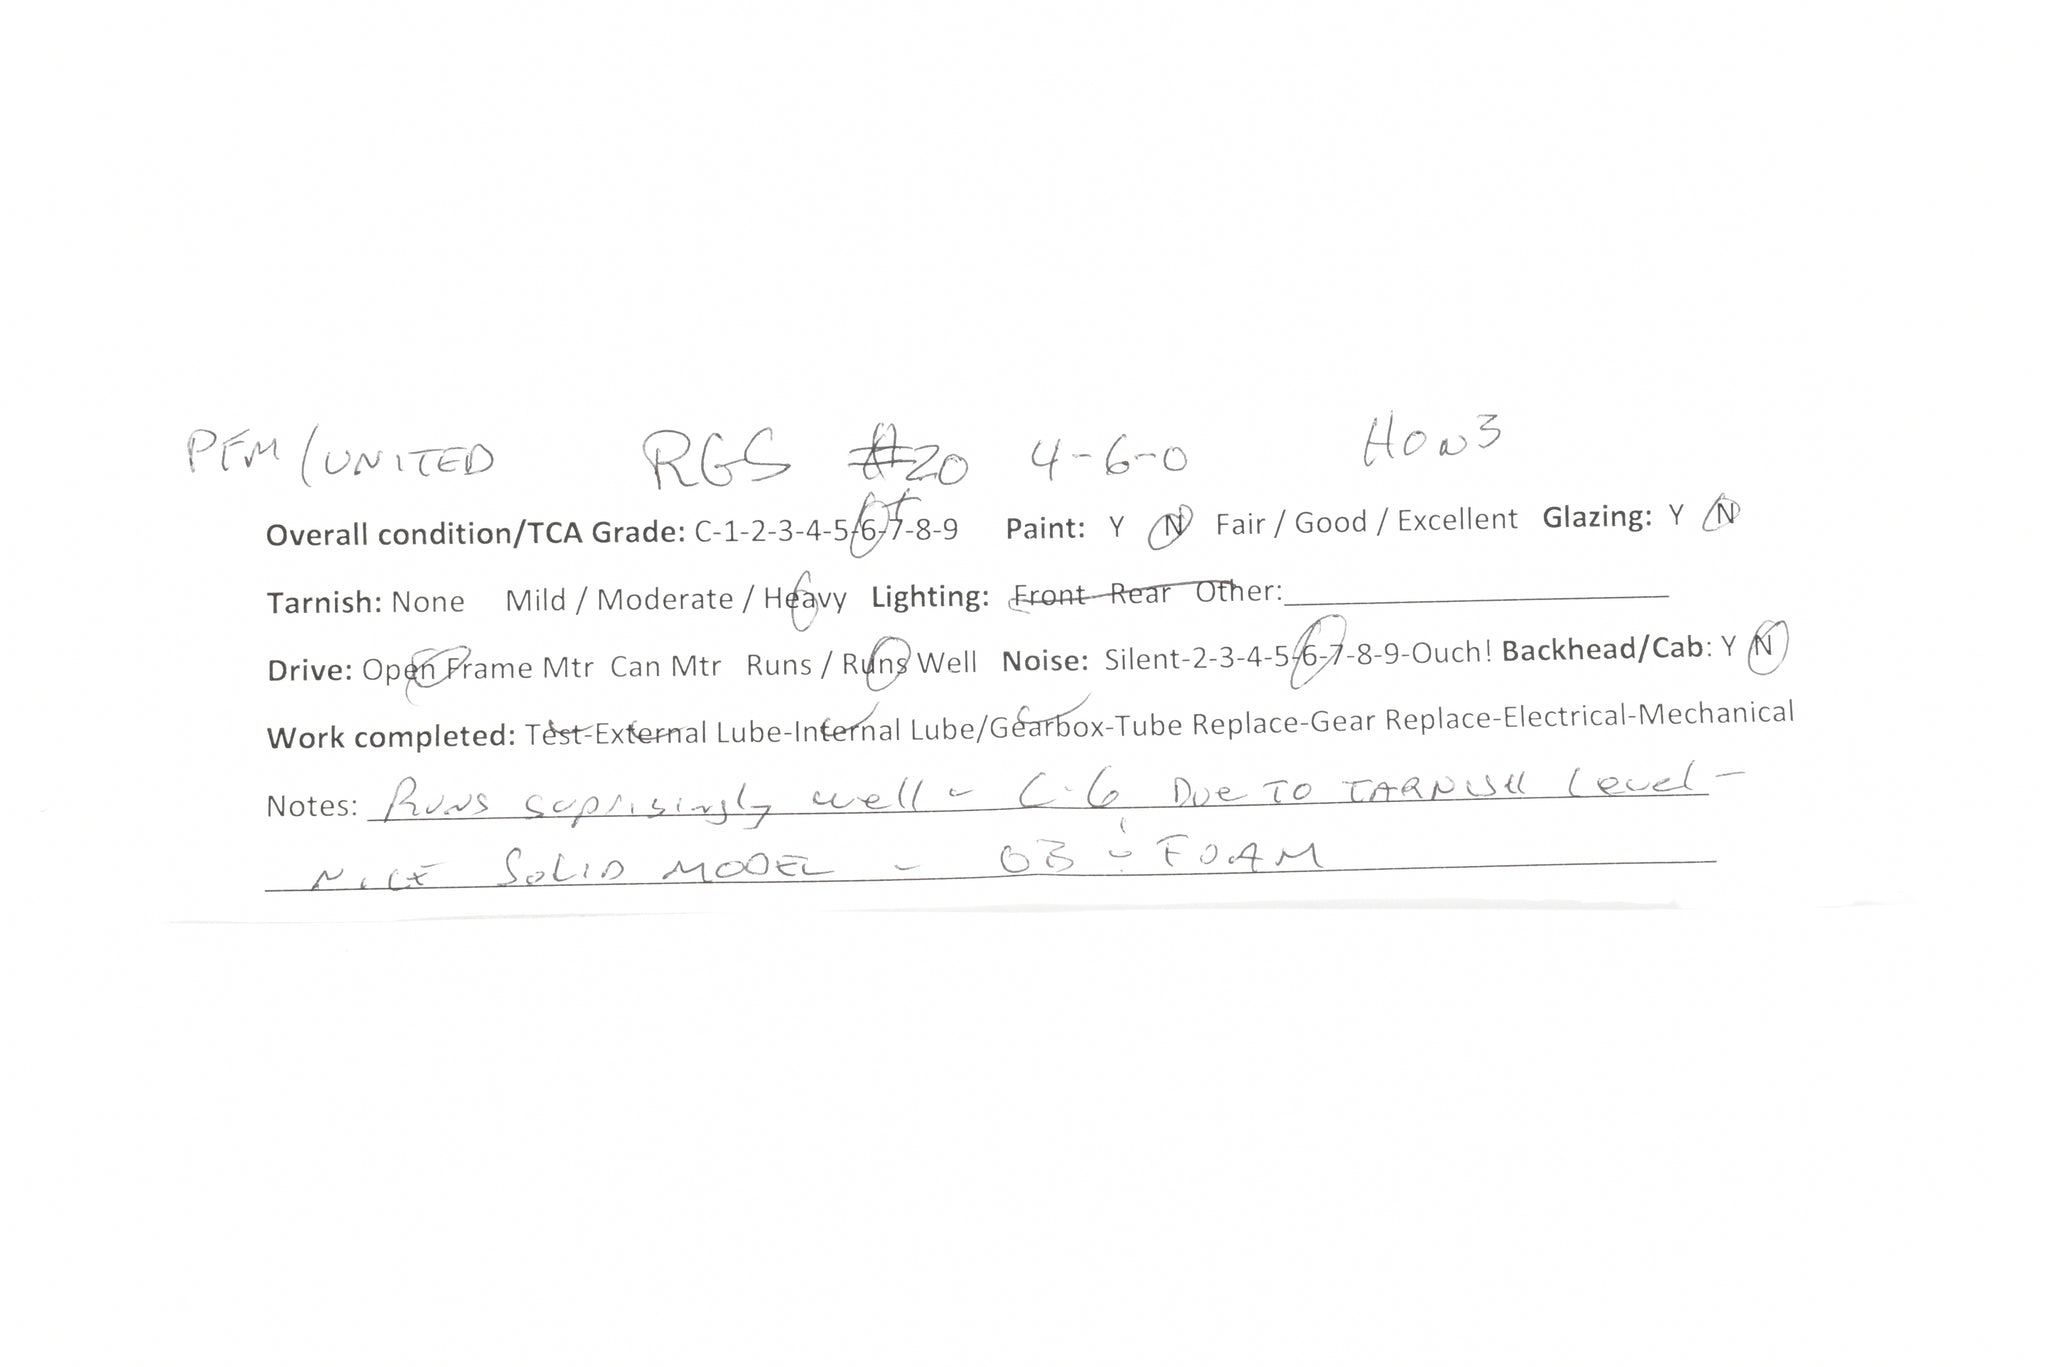 PFM/UNITED RGS #20 4-6-0 HOn3
Overall condition/TCA Grade: C-1-2-3-4-5-6+-7-8-9 Paint: Y N Fair / Good / Excellent Glazing: Y N
Tarnish: None Mild / Moderate / Heavy Lighting: Front Rear Other:
Drive: Open Frame Mtr Can Mtr Runs / Runs Well Noise: Silent-2-3-4-5-6-7-8-9-Ouch! Backhead/Cab: Y N
Work completed: Test-External Lube-Internal Lube/Gearbox-Tube Replace-Gear Replace-Electrical-Mechanical
Notes: Runs suprisingly well - C-6 Due TO TARNISH Level -
NICE SOLID MODEL - OB - FOAM